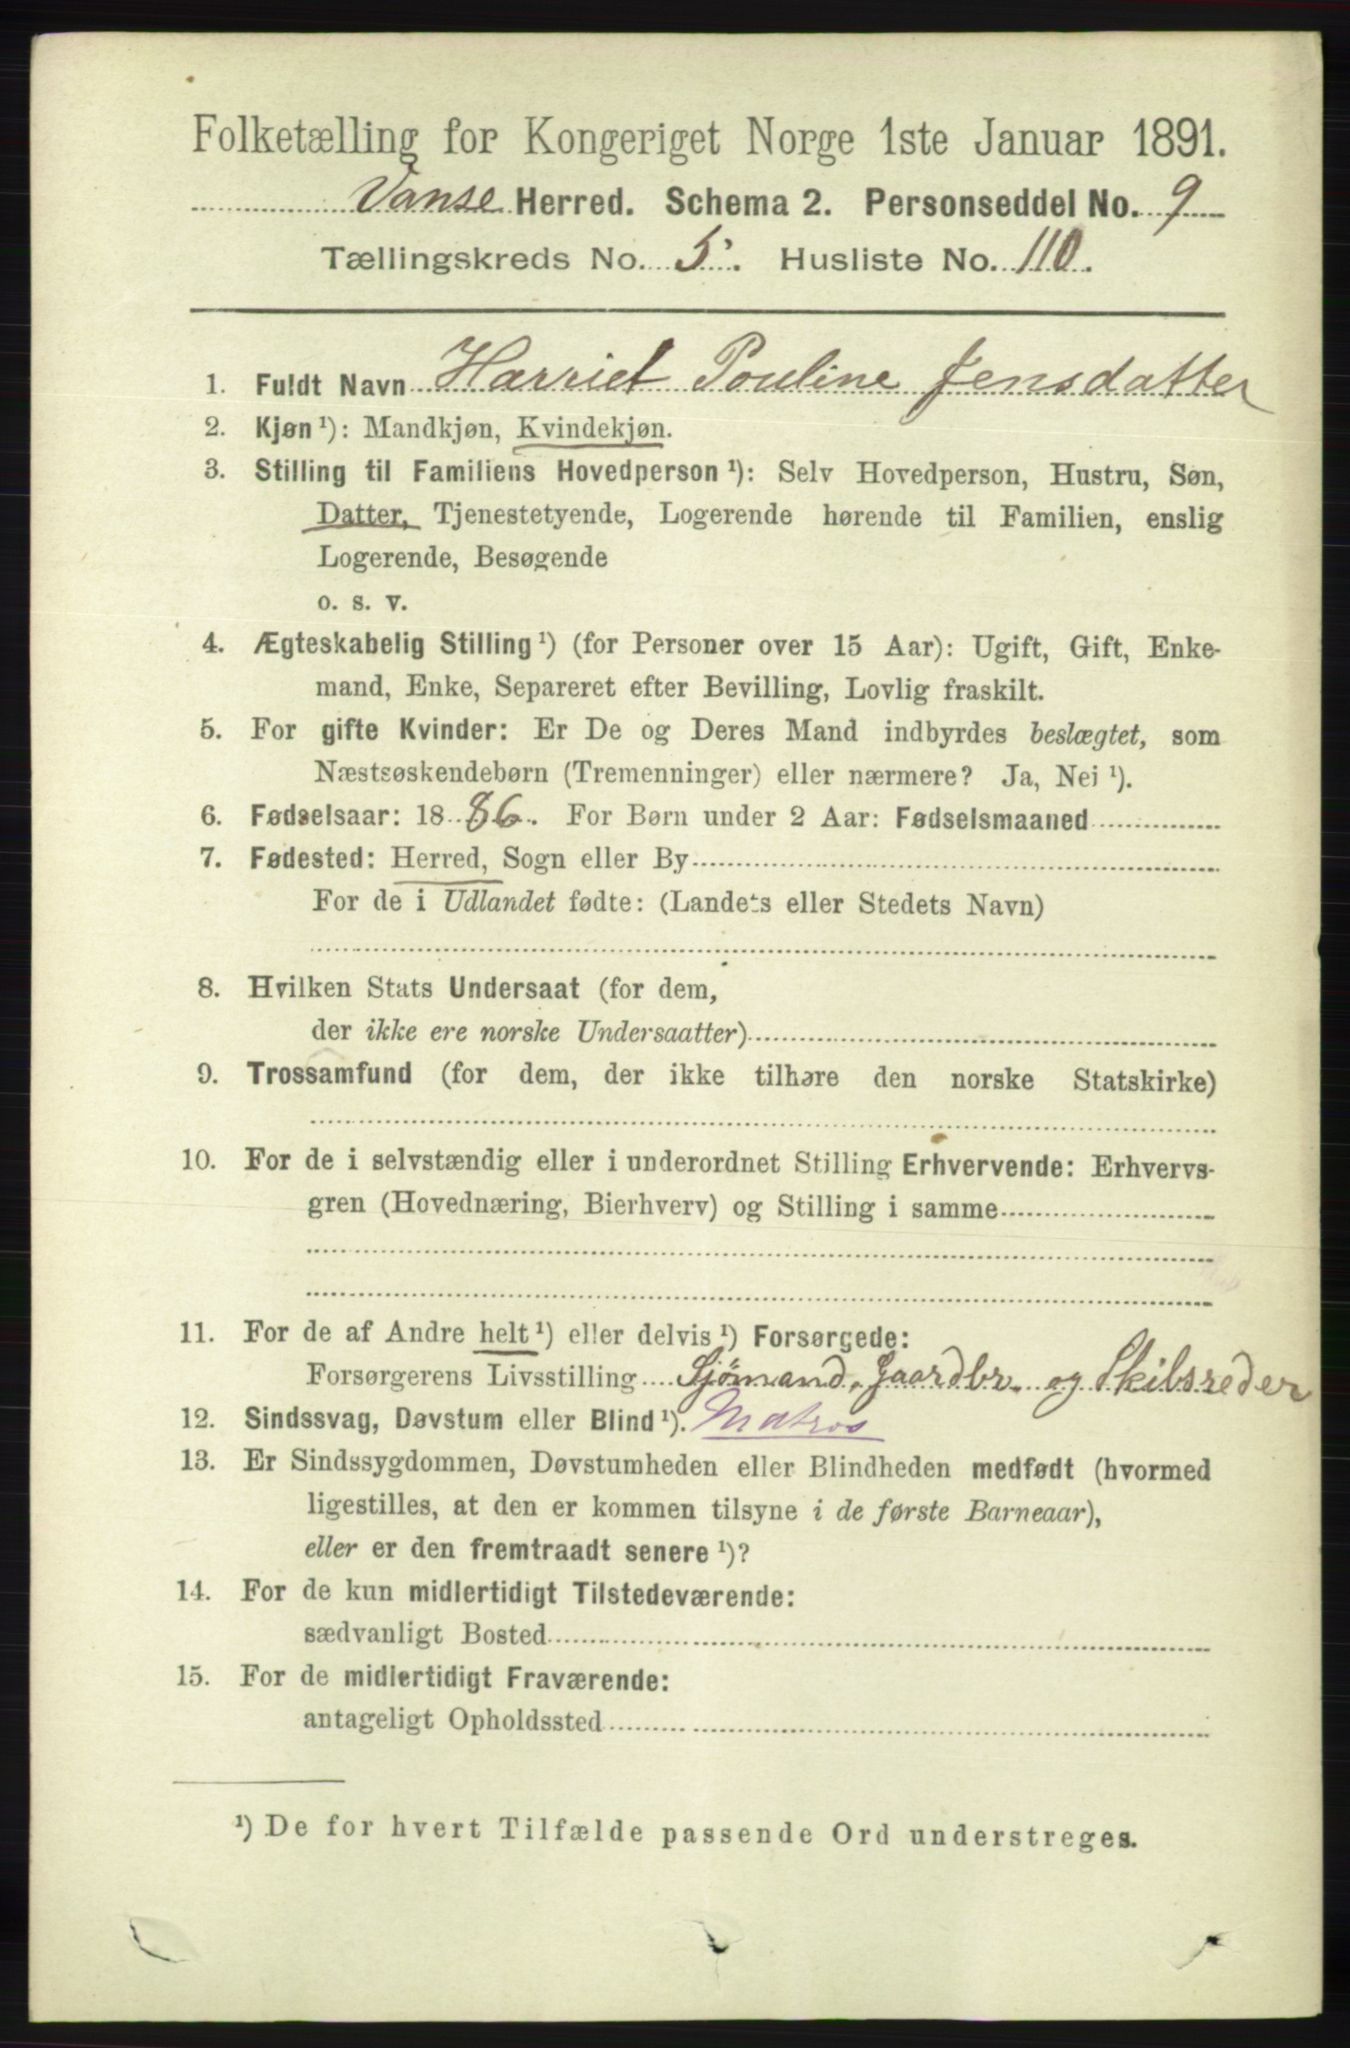 Folketælling for Kongeriget Norge 1ste Januar 1891.
Vanse Herred. Schema 2. Personseddel No. 9
Tællingskreds No. 5. Husliste No. 110.
1. Fuldt Navn Harriet Pouline Jensdatter
2. Kjøn ¹): Mandkjøn, Kvindekjøn.
3. Stilling til Familiens Hovedperson ¹): Selv Hovedperson, Hustru, Søn,
Datter, Tjenestetyende, Logerende hørende til Familien, enslig
Logerende, Besøgende
o. s. v.
4. Ægteskabelig Stilling ¹) (for Personer over 15 Aar): Ugift, Gift, Enke-
mand, Enke, Separeret efter Bevilling, Lovlig fraskilt.
5. For gifte Kvinder: Er De og Deres Mand indbyrdes beslægtet, som
Næstsøskendebørn (Tremenninger) eller nærmere? Ja, Nei ¹).
6. Fødselsaar: 1886. For Børn under 2 Aar: Fødselsmaaned
7. Fødested: Herred, Sogn eller By
For de i Udlandet fødte: (Landets eller Stedets Navn)
8. Hvilken Stats Undersaat (for dem,
der ikke ere norske Undersaatter)
9. Trossamfund (for dem, der ikke tilhøre den norske Statskirke)
10. For de i selvstændig eller i underordnet Stilling Erhvervende: Erhvervs-
gren (Hovednæring, Bierhverv) og Stilling i samme
11. For de af Andre helt ¹) eller delvis ¹) Forsørgede:
Forsørgerens Livsstilling Sjømand, Gaardbr. og Skibsreder
12. Sindssvag, Døvstum eller Blind ¹). Matros
13. Er Sindssygdommen, Døvstumheden eller Blindheden medfødt (hvormed
ligestilles, at den er kommen tilsyne i de første Barneaar),
eller er den fremtraadt senere ¹)?
14. For de kun midlertidigt Tilstedeværende:
sædvanligt Bosted
15. For de midlertidigt Fraværende:
antageligt Opholdssted
¹) De for hvert Tilfælde passende Ord understreges.